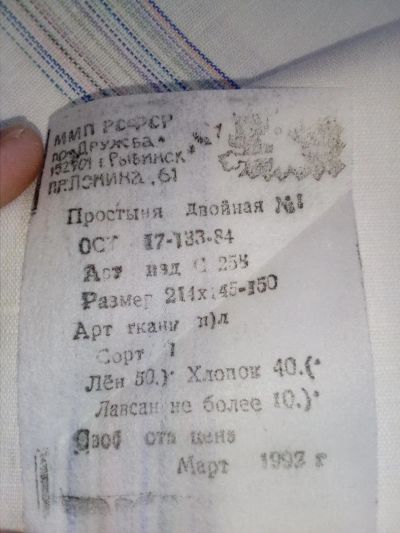 ММП РСФСР
по "Дружба" №1
152901 г Рыбинск
пр. Ленина, 61
Простыня Двойная №1
ОСТ 17-133-84
Арт изд С 258
Размер 214х145-150
Арт ткани п)л
Сорт 1
Лён 50.)· Хлопок 40.(·
Лавсан не более 10.)·
Своб отп цена
Март 1992 г